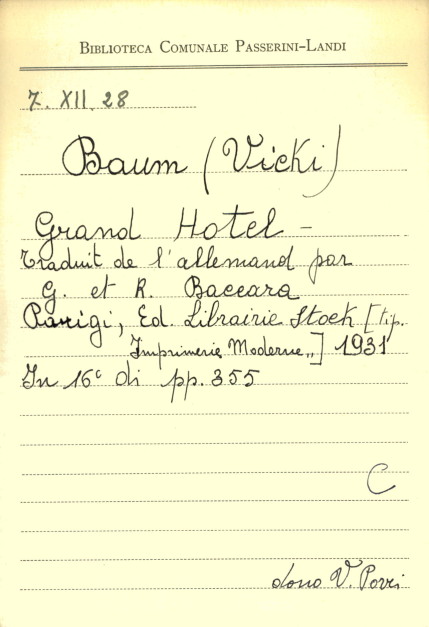 BIBLIOTECA COMUNALE PASSERINI-LANDI
7. XII. 28
Baum (Vicki)
Grand Hotel -
Traduit de l'allemand par
G. et R. Baccara
Parigi, Ed. Librairie Stock [tip.
Imprimerie Moderne„] 1931
In 16° di pp. 355
C
dono V. Povri